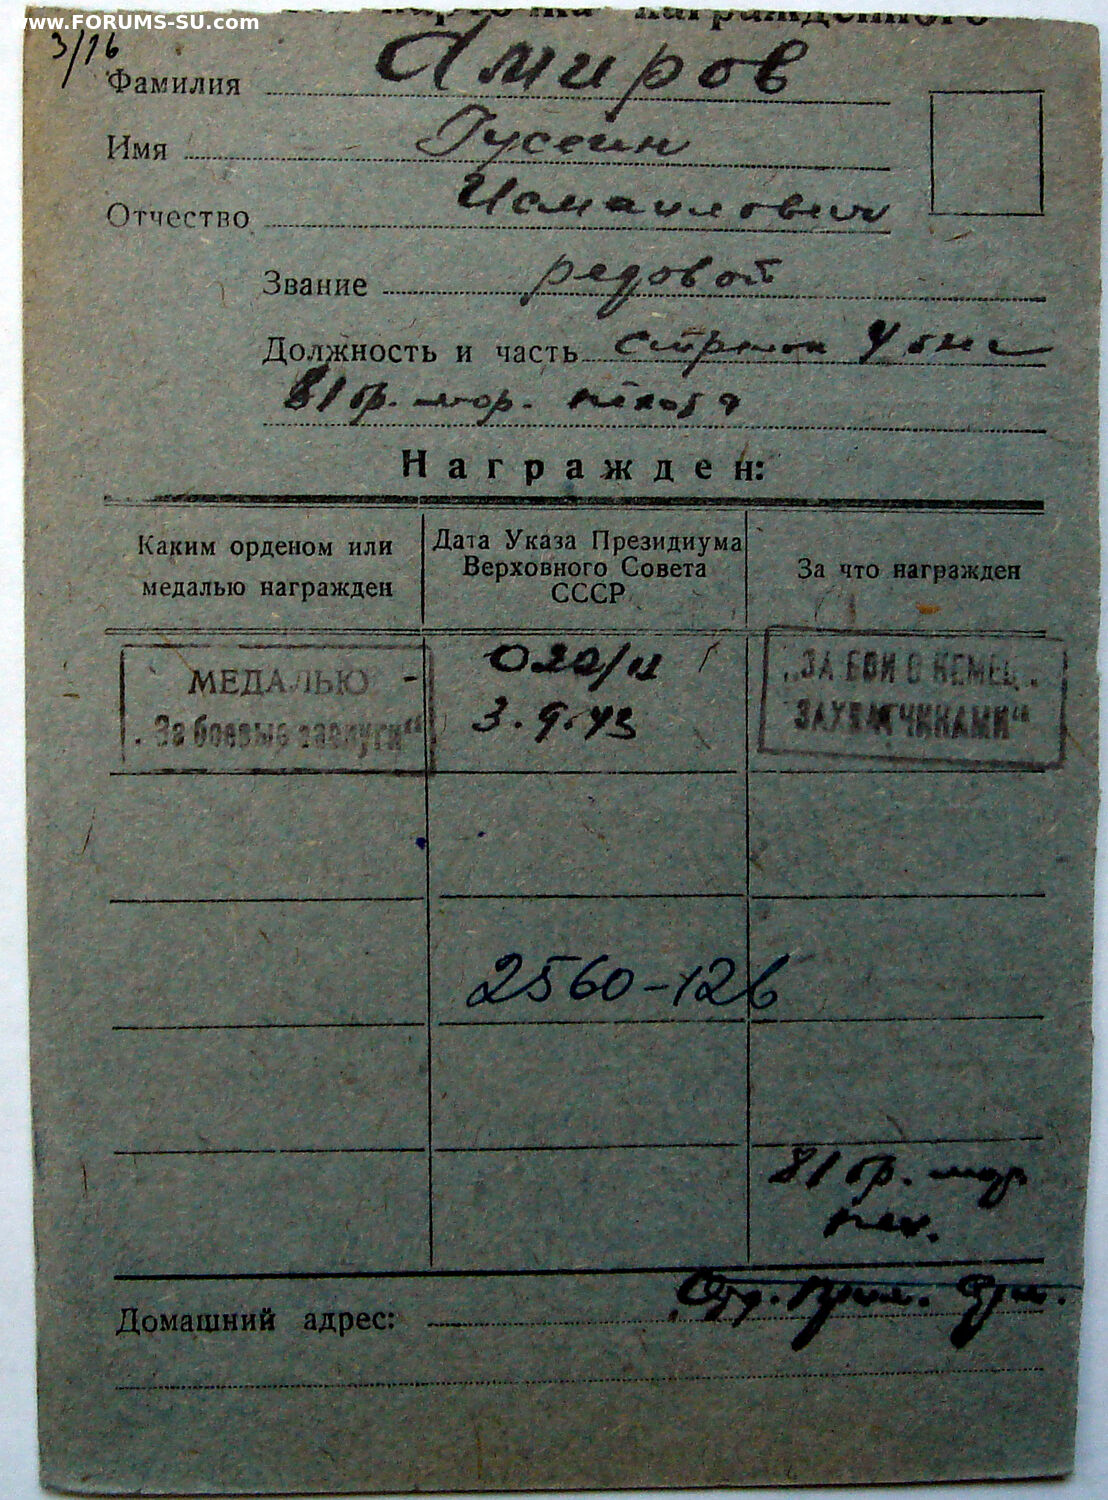 www.FORUMS-SU.com
карточка награжденного
3/16
Фамилия Амиров
Имя Гусеин
Отчество Исмаилович
Звание редовой
Должность и часть стрелок 4 бат
81 бр. мор. пехота
Награжден:
Каким орденом или медалью награжден
Дата Указа Президиума Верховного Совета СССР
За что награжден
МЕДАЛЬЮ -
"За боевые заслуги"
020/н
3.9.43
"ЗА БОИ С НЕМЕЦ.
ЗАХВАТЧИКАМИ"
2560-126
81 бр. мор
пех.
Отд. Прим. Арм.
Домашний адрес: